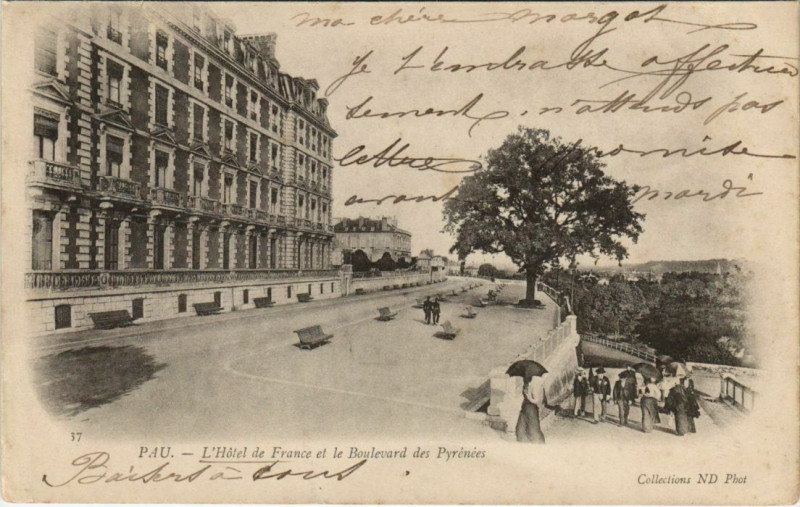 ma chère Margot
je t'embrasse affectueu
sement, n'attends pas
lettre promise
avant mardi
37
PAU. — L'Hôtel de France et le Boulevard des Pyrénées
Baisers à tous.
Collections ND Phot